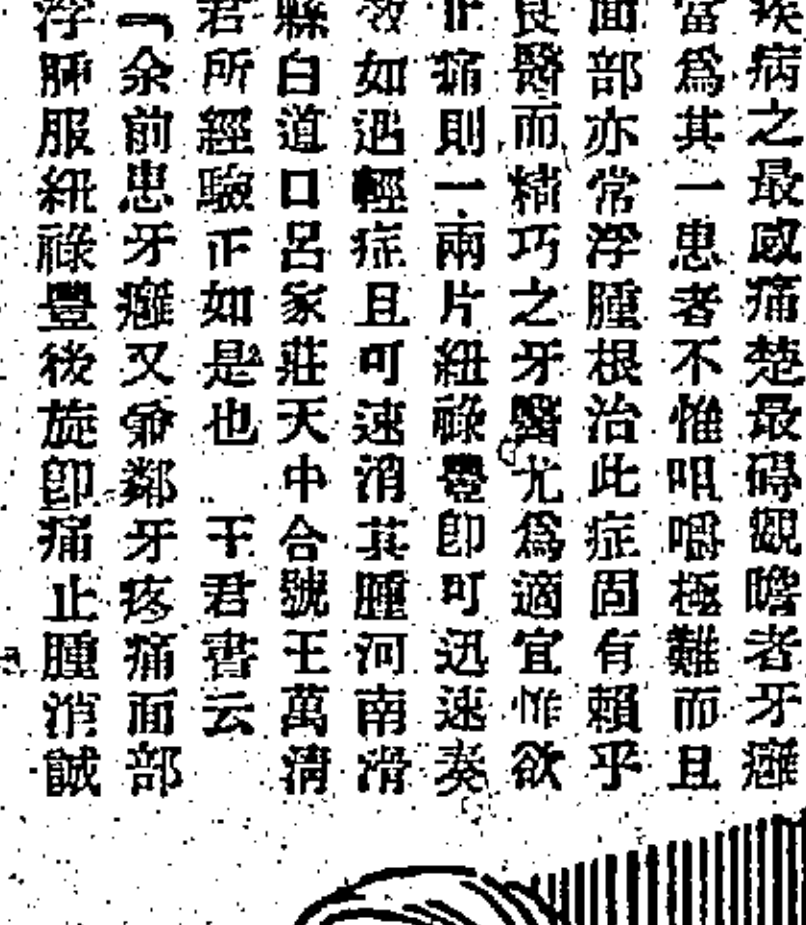 疾病之最感痛楚最碍觀瞻者牙癰
當爲其一患者不惟咀嚼極難而且
面部亦常浮腫根治此症固有賴乎
良醫而精巧之牙醫尤爲適宜惟欲
止痛則一兩片紐祿豐卽可迅速奏
效如遇輕症且可速消其腫河南滑
縣白道口呂家莊天中合號王萬淸
君所經驗正如是也　王君書云
「余前患牙癰又命鄰牙疼痛面部
浮腫服紐祿豐後旋卽痛止腫消誠